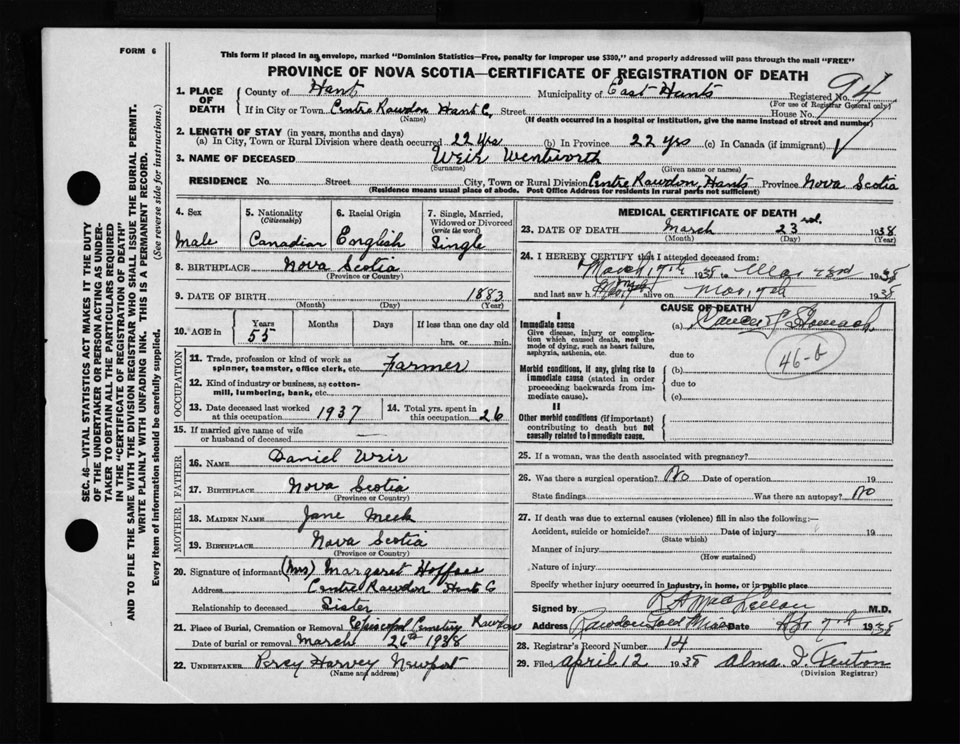 FORM 6
This form if placed in an envelope, marked "Dominion Statistics—Free, penalty for improper use $300," and properly addressed will pass through the mail "FREE"
PROVINCE OF NOVA SCOTIA—CERTIFICATE OF REGISTRATION OF DEATH
94
1. PLACE OF DEATH County of Hant Municipality of East Hants Registered No.
(For use of Registrar General only)
If in City or Town Centre Rawdon Hant C, Street House No.
(Name) (If death occurred in a hospital or institution, give the name instead of street and number)
2. LENGTH OF STAY (in years, months and days)
(a) In City, Town or Rural Division where death occurred 22 Yrs (b) In Province 22 yrs (c) In Canada (if immigrant)
3. NAME OF DECEASED Weir Wentworth
(Surname) (Given name or names)
RESIDENCE No. Street City, Town or Rural Division Centre Rawdon, Hants Province Nova Scotia
(Residence means usual place of abode. Post Office Address for residents in rural parts not sufficient)
SEC. 46—VITAL STATISTICS ACT MAKES IT THE DUTY
OF THE UNDERTAKER OR PERSON ACTING AS UNDER-
TAKER TO OBTAIN ALL THE PARTICULARS REQUIRED
IN THE "CERTIFICATE OF REGISTRATION OF DEATH"
AND TO FILE THE SAME WITH THE DIVISION REGISTRAR WHO SHALL ISSUE THE BURIAL PERMIT.
WRITE PLAINLY WITH UNFADING INK. THIS IS A PERMANENT RECORD.
Every item of information should be carefully supplied. (See reverse side for instructions.)
4. Sex
Male
5. Nationality
(Citizenship)
Canadian
6. Racial Origin
English
7. Single, Married,
Widowed or Divorced
(write the word)
Single
8. BIRTHPLACE Nova Scotia
(Province or Country)
9. DATE OF BIRTH 1883
(Month) (Day) (Year)
10. AGE in Years Months Days If less than one day old
55 hrs. or min.
OCCUPATION
11. Trade, profession or kind of work as
spinner, teamster, office clerk, etc. Farmer
12. Kind of industry or business, as cotton-
mill, lumbering, bank, etc.
13. Date deceased last worked
at this occupation 1937
14. Total yrs. spent in
this occupation 26
15. If married give name of wife
or husband of deceased —
FATHER
16. NAME Daniel Weir
17. BIRTHPLACE Nova Scotia
(Province or Country)
MOTHER
18. MAIDEN NAME Jane Meek
19. BIRTHPLACE Nova Scotia
(Province or Country)
20. Signature of informant (Mrs) Margaret
Address Centre Rawdon Hant C
Relationship to deceased Sister
21. Place of Burial, Cremation or Removal Episcopal Cemetery Rawdon
Date of burial or removal March 26th 1938
22. UNDERTAKER Percy Harvey Newport
(Name and address)
MEDICAL CERTIFICATE OF DEATH
23. DATE OF DEATH March 23 rd. 1938
(Month) (Day) (Year)
24. I HEREBY CERTIFY that I attended deceased from:
March 1938 to Mar 1938
and last saw h alive on Mar. 1938
CAUSE OF DEATH
I
Immediate cause
Give disease, injury or complica-
tion which caused death, not the
mode of dying, such as heart failure,
asphyxia, asthenia, etc.
(a) Cancer of Stomach
46-b
due to
Morbid conditions, if any, giving rise to
immediate cause (stated in order
proceeding backwards from im-
mediate cause).
(b)
due to
(c)
II
Other morbid conditions (if important)
contributing to death but not
causally related to immediate cause.
25. If a woman, was the death associated with pregnancy?
26. Was there a surgical operation? No Date of operation 19
State findings Was there an autopsy? No
27. If death was due to external causes (violence) fill in also the following:—
Accident, suicide or homicide? Date of injury 19
(State which)
Manner of injury
(How sustained)
Nature of injury
Specify whether injury occurred in industry, in home, or in public place
Signed by M.D.
Address Rawdon Gold Mines Date 1938
28. Registrar's Record Number 14
29. Filed April 12 1938 Alma I. Fenton
(Division Registrar)